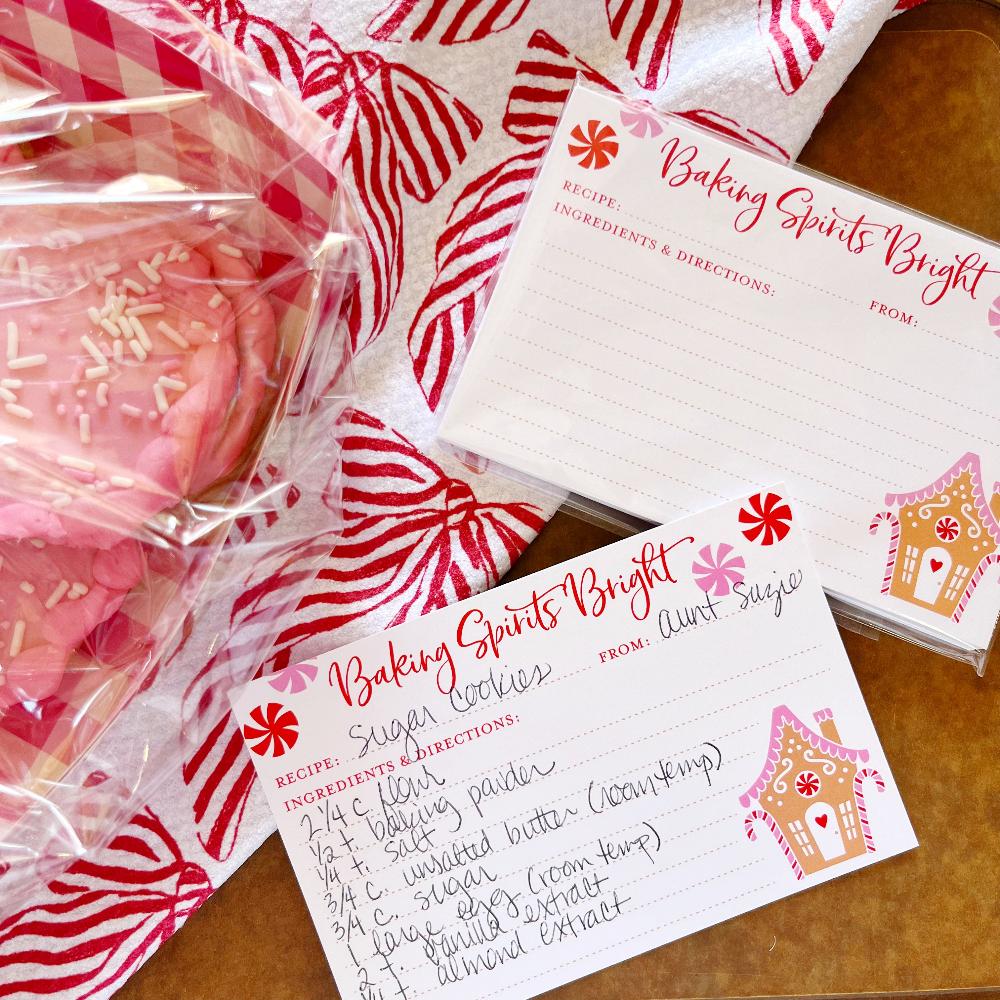 Baking Spirits Bright
RECIPE:
FROM:
INGREDIENTS & DIRECTIONS:
Baking Spirits Bright
RECIPE: Sugar Cookies FROM: Aunt Suzie
INGREDIENTS & DIRECTIONS:
2 1/4 c flour
1/2 t. baking powder
1/4 t. salt
3/4 c. unsalted butter (room temp)
3/4 c. sugar
1 large egg (room temp)
2 t. vanilla extract
1/4 t almond extract